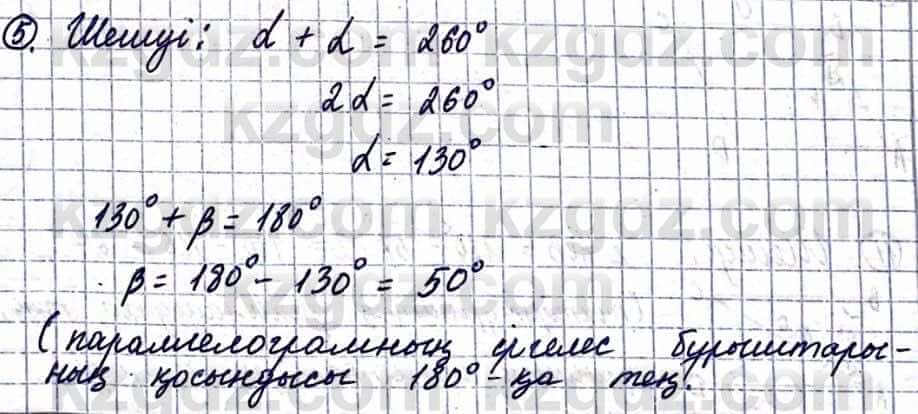 5. Шешуі: α + α = 260°
2α = 260°
α = 130°
130° + β = 180°
β = 180° - 130° = 50°
(параллелограмның іргелес бұрыштары-
ның қосындысы 180°-қа тең.
kzgdz.com